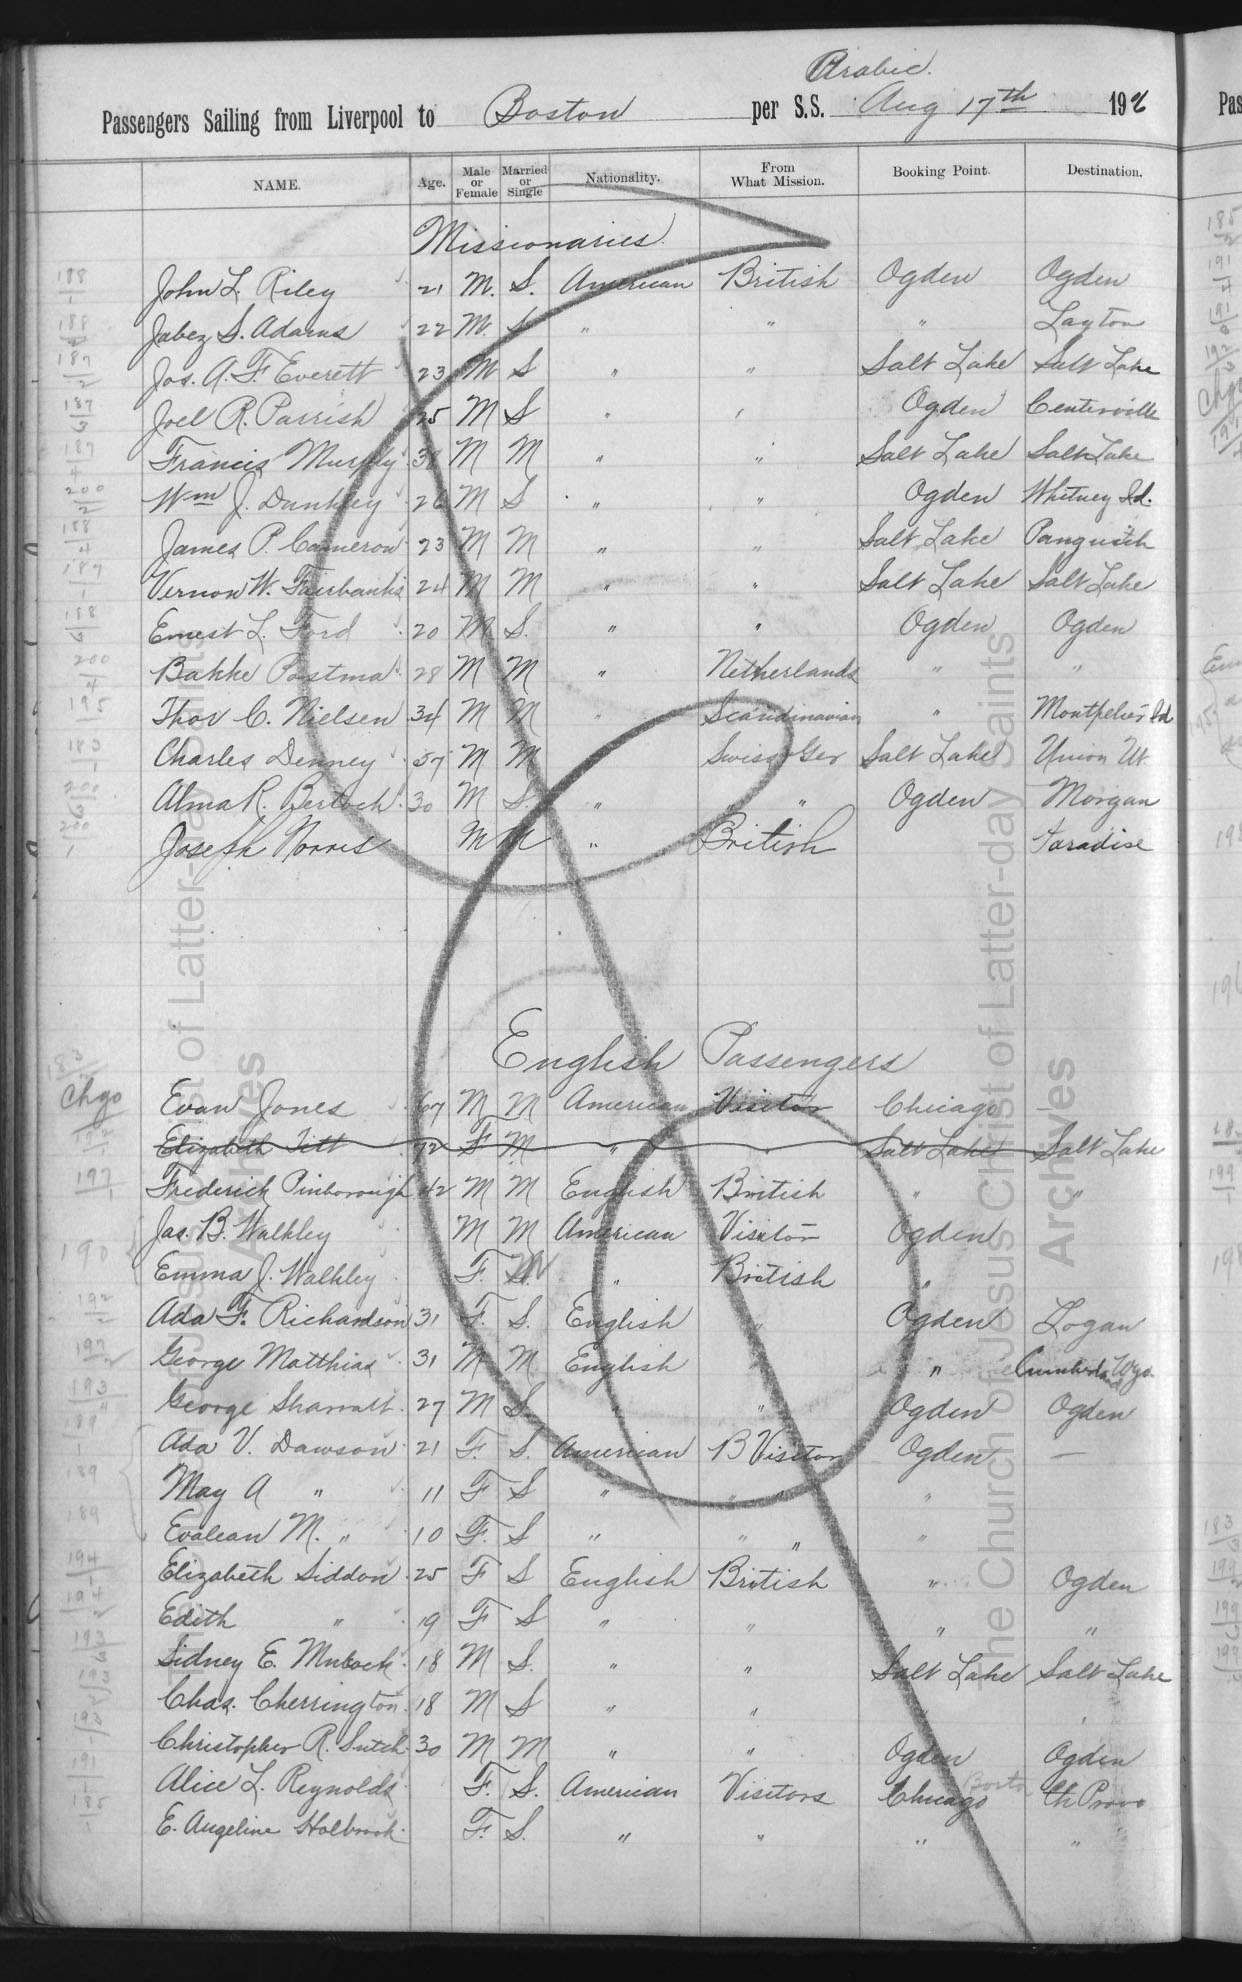 Arabic.
Passengers Sailing from Liverpool to Boston per S.S. Aug 17th 19
NAME. Age. Male or Female Married or Single Nationality. From What Mission. Booking Point. Destination.
Missionaries.
188/1 John L. Riley 21 M. S. American British Ogden Ogden
188 Jabez S. Adams 22 M. S " " " Layton
187/2 Jos. A. F. Everett 23 M S " " Salt Lake Salt Lake
187/3 Joel R. Parrish 25 M S " " Ogden Centerville
187/4 Francis Murphy M M " " Salt Lake Salt Lake
200/2 Wm J. Dunkley 26 M S " " Ogden Whitney Id.
188/4 James P. Cameron 23 M M " " Salt Lake Panguitch
187/1 Vernon W. Fairbanks 24 M M " " Salt Lake Salt Lake
188/3 Ernest L. Ford 20 M S. " " Ogden Ogden
200/4 Bakke Postma 28 M M " Netherlands " "
195 Thor C. Nielsen 34 M M " Scandinavian " Montpelier Id
183/1 Charles Denney 57 M M Swiss Ger Salt Lake Union Ut.
200/3 Alma R. Bertoch 30 M S. " " " Ogden Morgan
200/1 Joseph Norris M M " British Paradise
English Passengers
183
Chgo Evan Jones 67 M M American Visitor Chicago
Elizabeth Titt 72 F M " " Salt Lake Salt Lake
197/1 Frederick Pinborough 42 M M English British " "
190 Jas. B. Walkley M M American Visitor Ogden
Emma J. Walkley F. M " British "
192/2 Ada F. Richardson 31 F. S. English " Ogden Logan
197/2 George Matthias 31 M M English " Cumberland Wyo.
193 George Sharratt 27 M S " " Ogden Ogden
189/1 Ada V. Dawson 21 F. S. American B Visitor Ogden —
189 May A " 11 F S " " " "
189 Evalean M. " 10 F. S " " " "
194/1 Elizabeth Siddon 25 F S English British " Ogden
194/2 Edith " 19 F S " " " "
193/3 Sidney E. 18 M S. " " Salt Lake Salt Lake
193/2 Chas. Cherrington 18 M S " " " "
193/1 Christopher R. Sutch 30 M M " " Ogden Ogden
191/1 Alice L. Reynolds F. S. American Visitors Chicago Provo
185/1 E. Angeline Holbrook F. S. " " " "
The Church of Jesus Christ of Latter-day Saints
Archives
The Church of Jesus Christ of Latter-day Saints
Archives